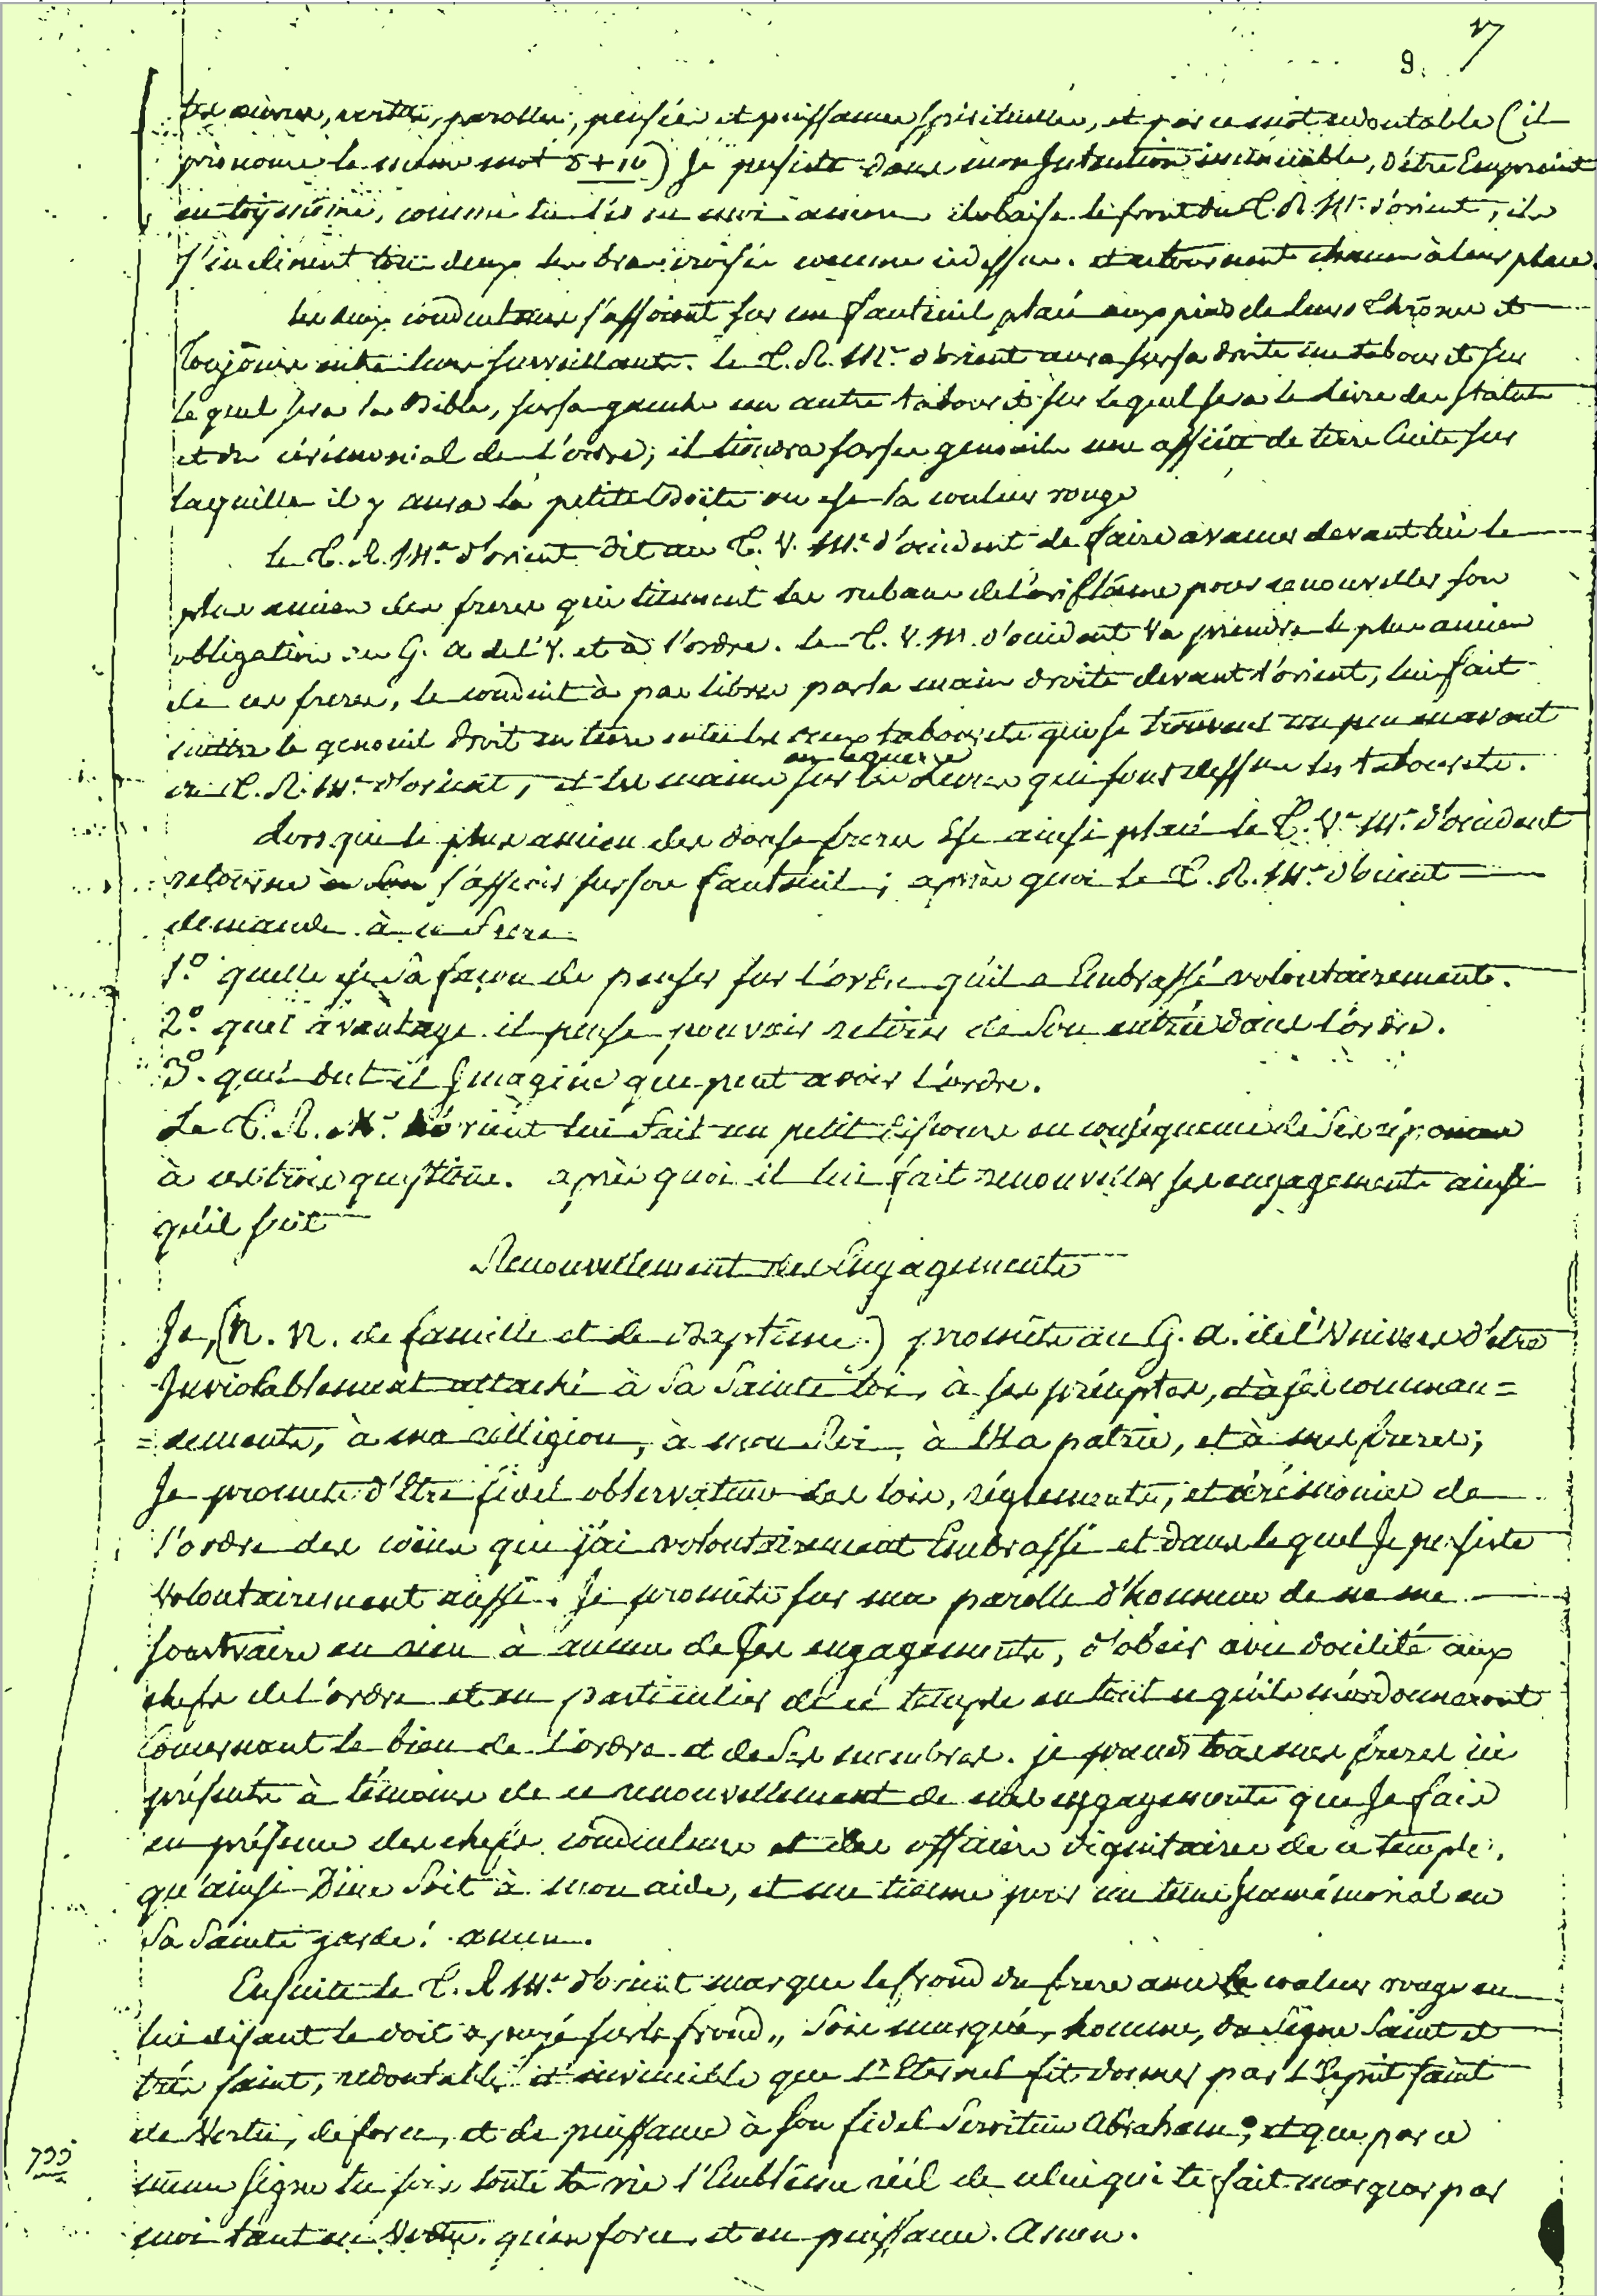 9. 7
tes œuvres, vertus, parolles, pensées et puissances spirituelles, et par ce mot redoutable (il
prononce le même mot 8+10) Je persiste dans mon Intention invinsible, d'être Empreint
en toÿ même, comme tu l'és en moi amen il baise le front du T.R.Mr. d'orient, ils
s'inclinent tous deux les bras croisés comme cidessus. et retournent chacun à leur place.
les deux conducteurs s'assoient sur un fauteuil placé aux pieds de leurs Thrônes et
Toujours entre leurs surveillants. le T.R.Mr. d'orient aura sur sa droite un tabouret sur
le quel sera la Bible, sur sa gauche un autre tabouret sur lequel sera le livre des statuts
et du cérémonial de l'ordre; il tiendra sur ses genouils une assiéte de terre Cuite sur
laquelle il y aura la petite Boëte ou est la couleur rouge
le T.R.Mr. d'orient dit au T.V.Mr. d'occident de faire avancer devant lui le
plus ancien des freres qui tiennent les rubans de l'oriflâme pour renouveller son
obligation au G. A de l'V. et à l'ordre. le T.V.M. d'occident va prendre le plus ancien
de ces freres, le conduit à pas libres par la main droite devant l'orient, lui fait
mettre le genouil droit en terre entre les deux tabourets qui se trouvent un peu en avant
du T.R.Mr. d'orient, et les mains sur les Livres qui sont dessus les tabourets.
en équerre
Lors que le plus ancien des douse freres Est ainsi placé le T.Vr.Mr. d'occident
retourne s'asseoir sur son fauteuil; après quoi le T.R.Mr. d'orient
demande à ce frere
1º. quelle est sa façon de penser sur l'ordre qu'il a Embrassé volontairement.
2º. quel avantage il pense pouvoir retirer de son entrée dans l'ordre.
3º. quel but il Jmagine que peut avoir l'ordre.
Le T.R.Mr. d'orient lui fait un petit discours en conséquence de ses réponses
à ces trois questions. après quoi il lui fait renouveller ses engagements ainsi
qu'il suit
Renouvellement des Engagements
Je, (N. N. de famille et de Baptême) promets au G. A. de l'Univers d'etre
Jnviolablement attaché à sa sainte loi, à ses préceptes, et à ses comman=
=dements, à ma relligion, à mon Roi, à Ma patrie, et à mes freres;
Je promets d'être fidel observateur des lois, réglements, et cérémonies de
l'ordre des coëns que j'ai volontairement Embrassé et dans lequel Je persiste
volontairement aussi. Je promets sur ma parolle d'honneur de ne me
soustraire en rien à aucun de ses engagements, d'obéir avec docilité aux
chefs de l'ordre et en particulier de ce temple en tout ce qu'ils m'ordonneront
Concernant le bien de l'ordre et de ses membres. je prends tous mes freres ici
présents à témoins de ce renouvellement de mes engagements que Je fais
en présence des chefs conducteurs et des officiers dignitaires de ce temple.
qu'ainsi Dieu soit à mon aide, et me tienne pour un tems Jmmémorial en
sa sainte garde! amen.
Ensuite le T.R Mr. d'orient marque le frond du frere avec la couleur rouge en
lui disant le doit apuyé sur le frond,, sois marqué, homme, du signe saint et
très saint, redoutable et invincible que l'Eternel fit donner par l'Esprit saint
de Vertu, de force, et de puissance à son fidel serviteur Abraham; et que par ce
même signe tu sois toute ta vie l'Emblême réél de celui qui te fait marquer par
moi tant en Vertu. qu'en force et en puissance. Amen.